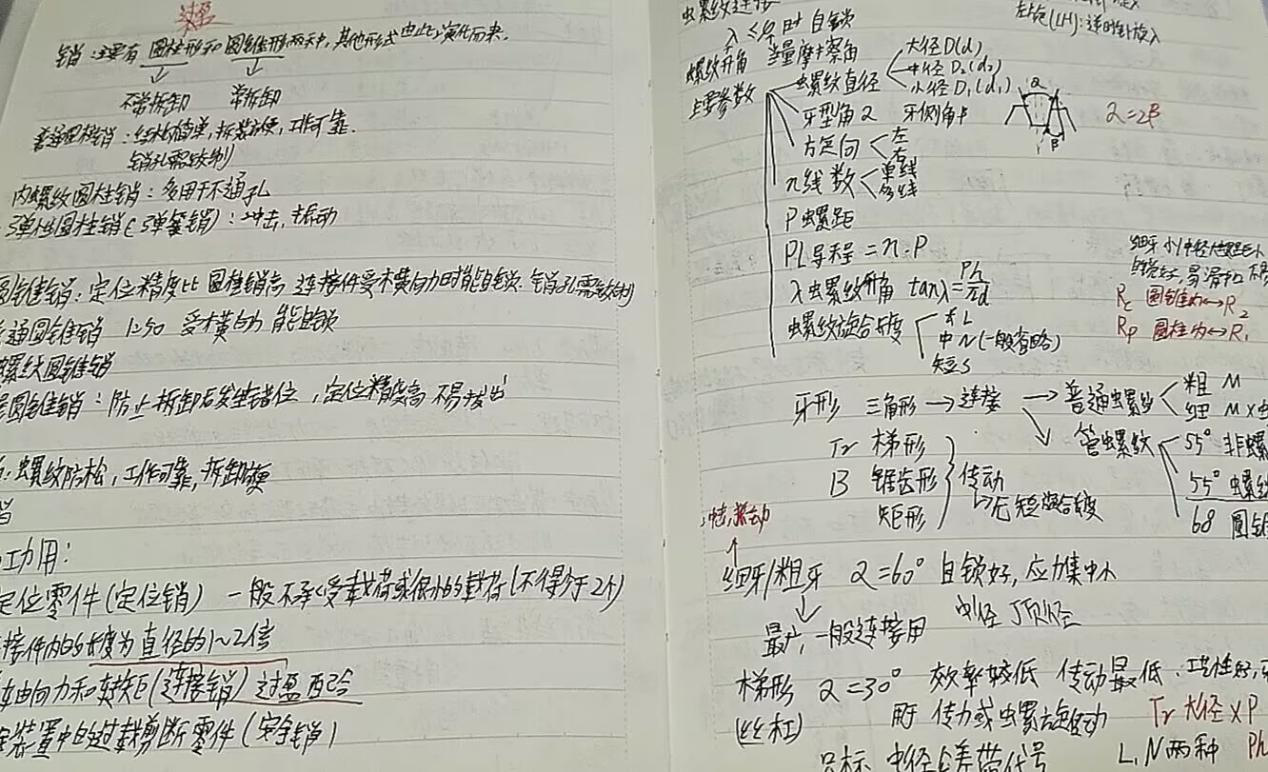 过盈
销：主要有圆柱形和圆锥形两种，其他形式由此演化而来。
不常拆卸 常拆卸
普通圆柱销：结构简单，拆装方便，工作可靠．
销孔需铰制
内螺纹圆柱销：多用于不通孔
弹性圆柱销(弹簧销)：冲击，振动
圆锥销：定位精度比圆柱销高 连接件受横向力时能自锁．销孔需铰制
通圆锥销 1:50 受横向力 能自锁
螺纹圆锥销
圆锥销：防止拆卸后发生错位，定位精度高 不易拔出
：螺纹防松，工作可靠，拆卸方便
销
功用：
定位零件(定位销) 一般不承受载荷或很小的载荷(不得少于2个)
接件内的长度为直径的1~2倍
轴向力和转矩(连接销) 过盈配合
装置中的过载剪断零件(安全销)
螺纹连接
左旋(LH)：逆时针旋入
λ ≤ 时自锁
螺纹升角 当量摩擦角
主要参数
螺纹直径
大径D(d)
中径D₂(d₂)
小径D₁(d₁)
牙型角α 牙侧角β
α=2β
方旋向 左
右
n线数 单线
多线
P 螺距
PL导程=n·P
λ螺纹升角 tanλ=Ph/πd
螺纹旋合长度 长L
中N(一般省略)
短S
Rc 圆锥内↔R₂
Rp 圆柱内↔R₁
牙形 三角形→连接→普通螺纹 粗 M
细 M×
管螺纹 55°非螺
55°螺纹
68 圆锥
Tr 梯形
B 锯齿形 传动
矩形 ↳无短旋合长度
冲击，振动
细牙/粗牙 α=60° 自锁好，应力集中小
最广，一般连接用 中径 顶径
梯形 α=30° 效率较低 传动最低．工艺性好，
(丝杠) 用于 传力或螺旋传动 Tr 大径×P
只标 中径公差带代号 L，N两种 Ph